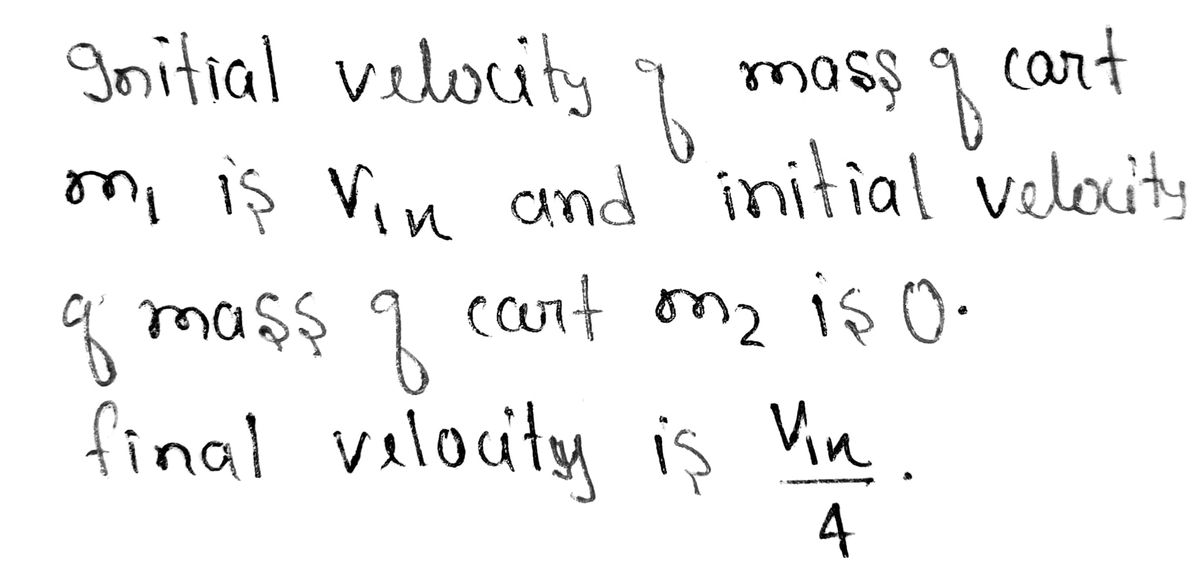 Initial velocity of mass of cart
m₁ is Vin and initial velocity
of mass of cart m₂ is 0.
final velocity is Vin/4.